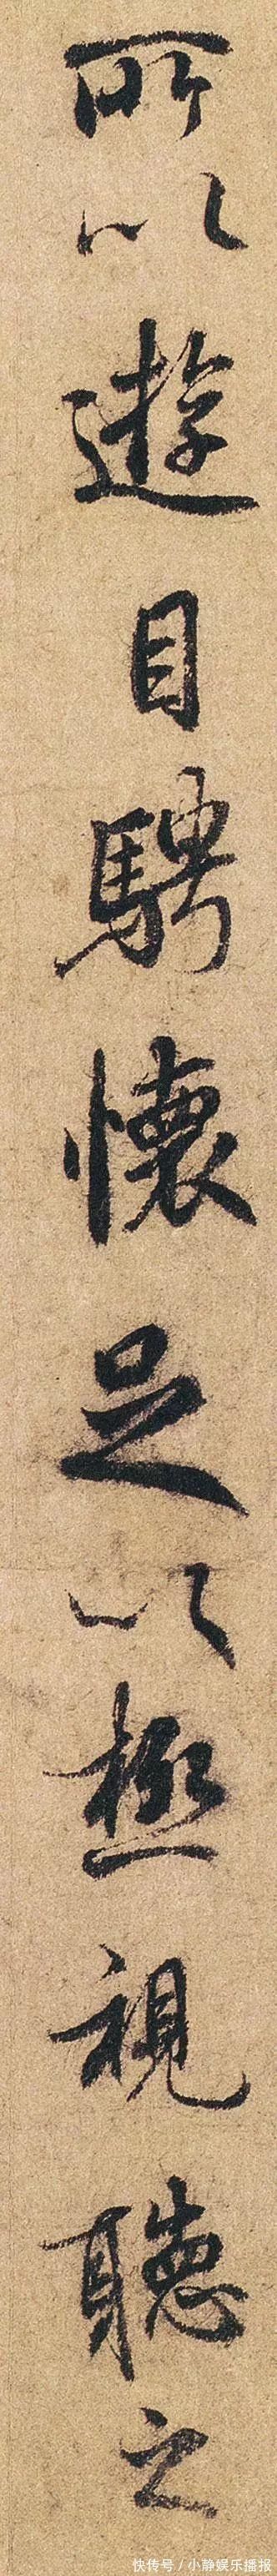 所以遊目騁懷足以極視聽之
快传号/小静娱乐播报